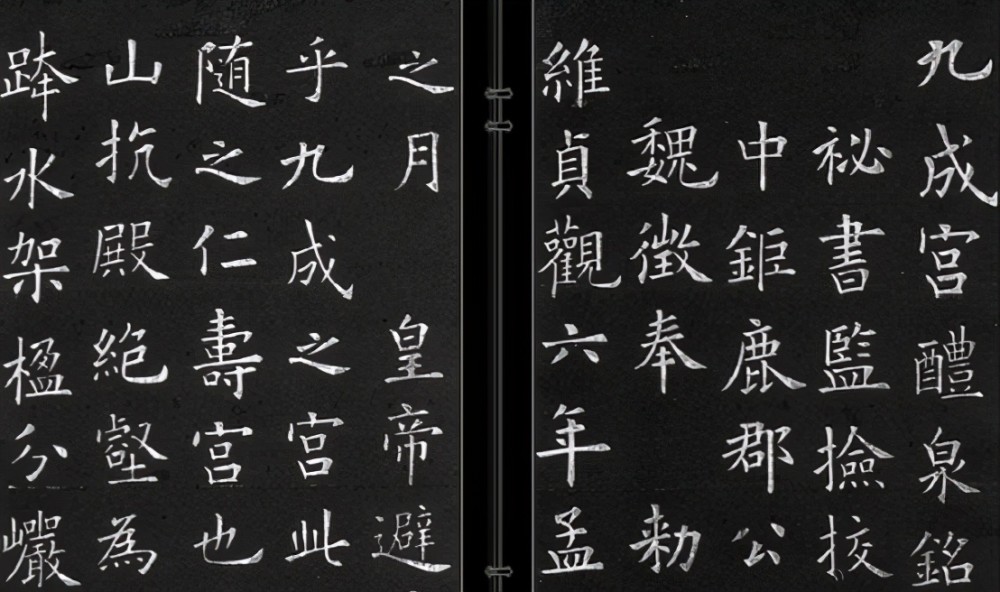 九成宮醴泉銘
祕書監撿挍
中鉅鹿郡公
魏徵奉 勅
維貞觀六年孟
之月 皇帝避
乎九成之宮此
随之仁壽宮也
山抗殿絶壑為
跨水架楹分巖